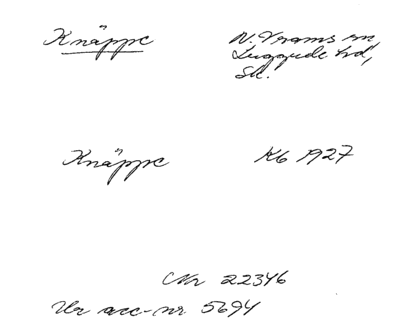 Knäppe
N. Vrams sn
Luggude hd,
Sk.
Knäppe
Kb 1927
Nr 22346
Ur acc-nr 5694